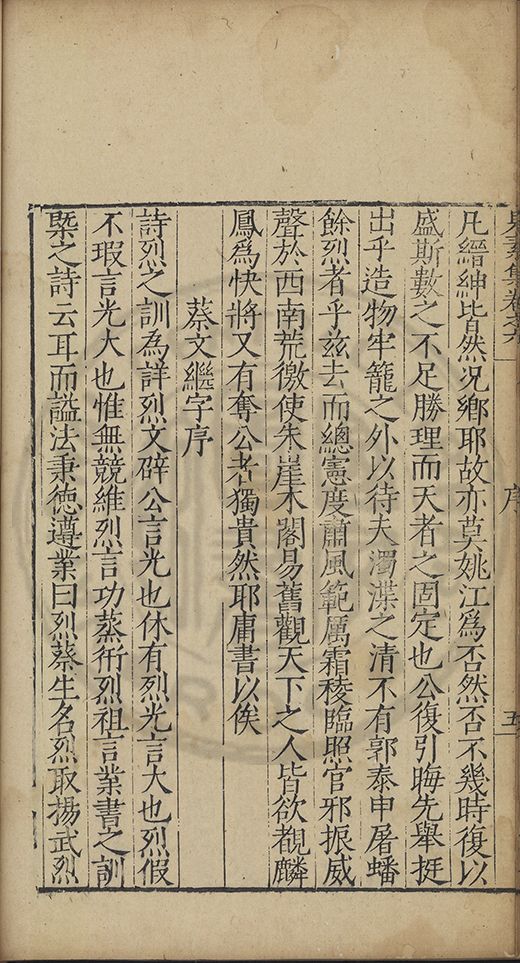 集卷之六
序
五
凡縉紳皆然况鄉耶故亦莫姚江爲否然否不幾時復以
盛斯數之不足勝理而天者之固定也公復引晦先舉挺
出乎造物牢籠之外以待夫濁渫之清不有郭泰申屠蟠
餘烈者乎兹去而總憲度肅風範厲霜稜臨照官邪振威
聲於西南荒徼使朱崖木閣易舊觀天下之人皆欲覩麟
鳳爲快將又有奪公者獨貴然耶庸書以俟
蔡文繼字序
詩烈之訓為詳烈文辟公言光也休有烈光言大也烈假
不瑕言光大也惟無競維烈言功烝衎烈祖言業書之訓
槩之詩云耳而謚法秉德遵業曰烈蔡生名烈取揚武烈